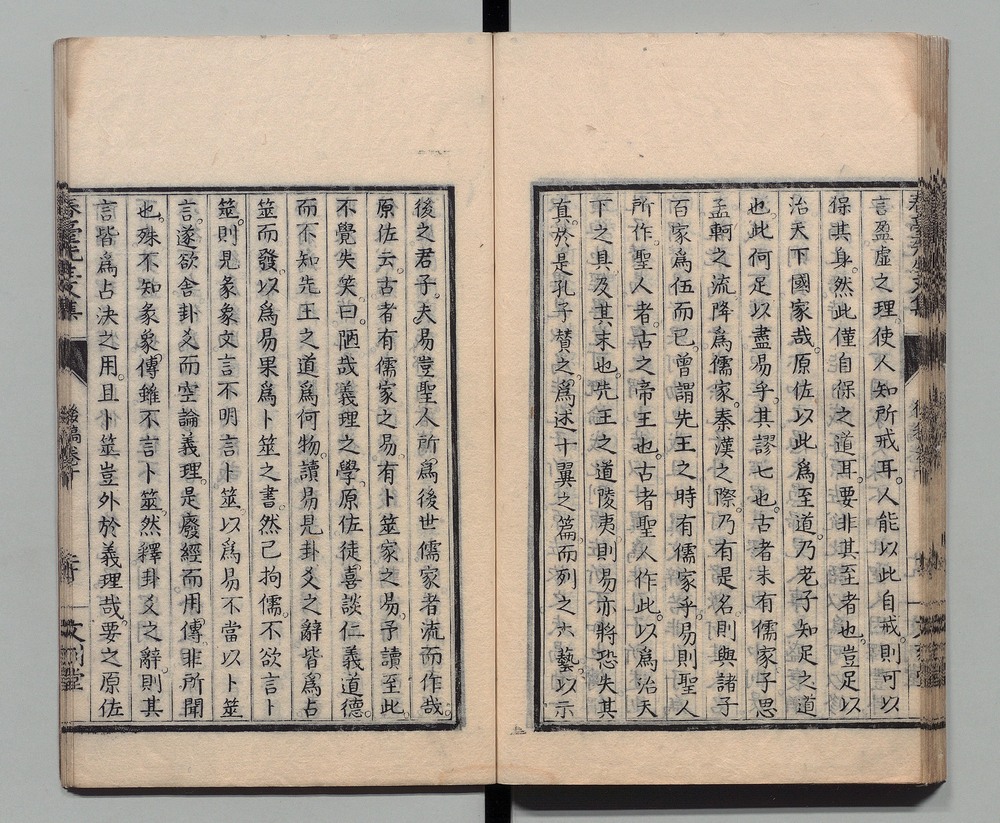 言盈虛之理。使人知所戒耳。人能以此自戒。則可以
保其身。然此僅自保之道耳。要非其至者也。豈足以
治天下國家哉。原佐以此爲至道。乃老子知足之道
也。此何足以盡易乎。其謬七也。古者未有儒家。子思
孟軻之流。降爲儒家。秦漢之際。乃有是名。則與諸子
百家爲伍而已。曾謂先王之時有儒家乎。易則聖人
所作。聖人者。古之帝王也。古者聖人作此。以爲治天
下之具。及其末也。先王之道陵夷。則易亦將恐失其
真。於是孔子贊之。爲述十翼之篇。而列之六藝。以示
後之君子。夫易豈聖人所爲後世儒家者流而作哉。
原佐云。古者有儒家之易。有卜筮家之易。予讀至此。
不覺失笑。曰。陋哉義理之學。原佐徒喜談仁義道德。
而不知先王之道爲何物。讀易見卦爻之辭皆爲占
筮而發。以爲易果爲卜筮之書。然己拘儒。不欲言卜
筮。則見彖象文言不明言卜筮。以爲易不當以卜筮
言。遂欲舍卦爻而空論義理。是廢經而用傳。非所聞
也。殊不知彖象傳雖不言卜筮。然釋卦爻之辭。則其
言皆爲占決之用。且卜筮豈外於義理哉。要之原佐
春臺先生文集
後稿卷十